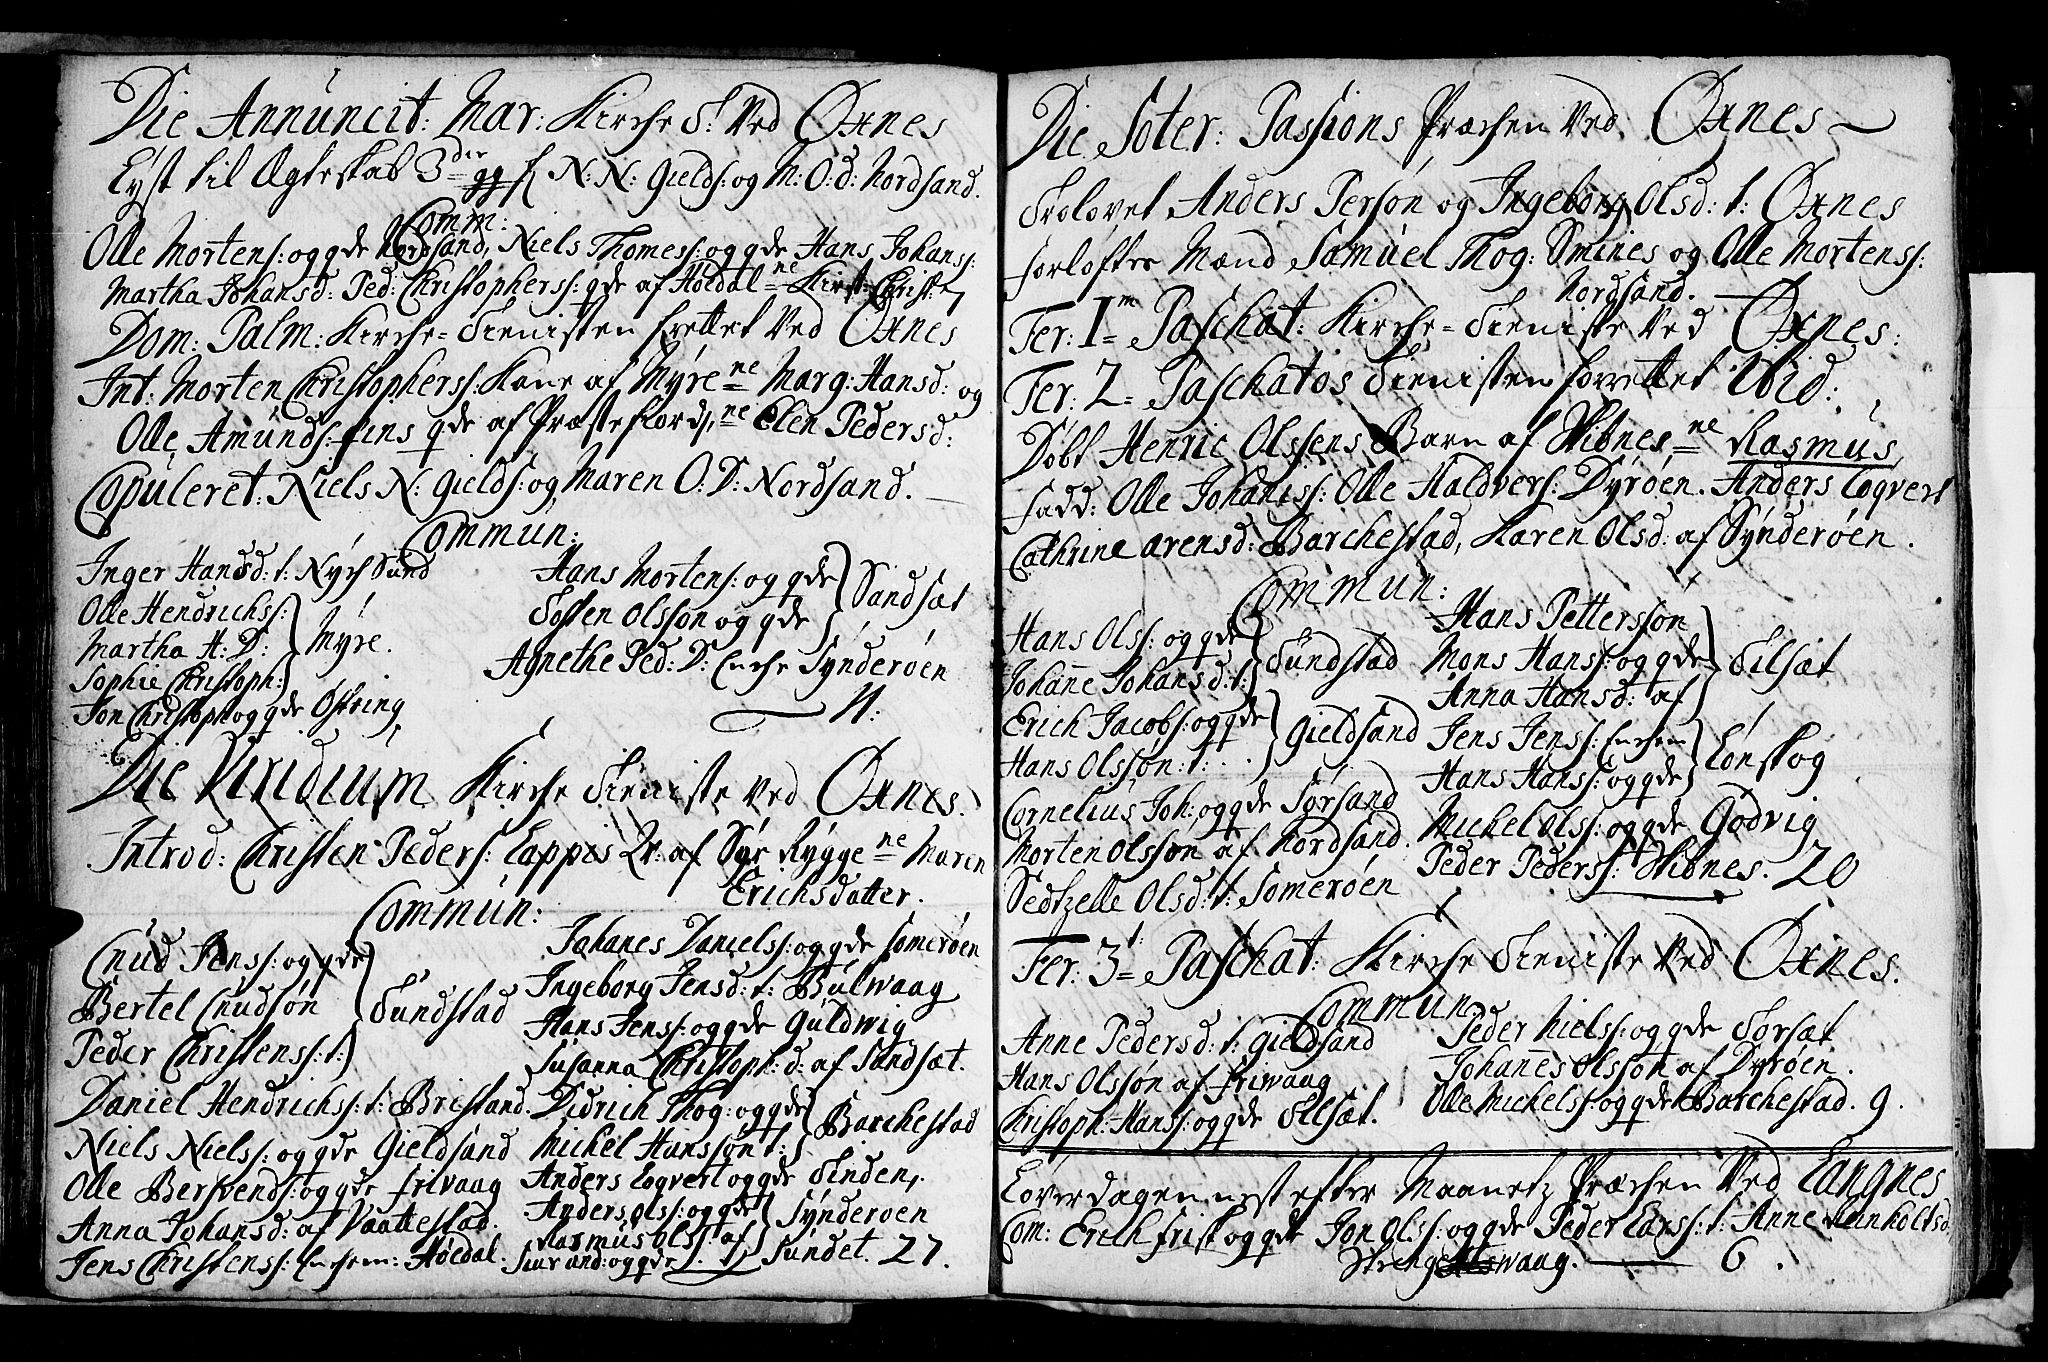 Die Annuncit: Mar: Kirche S: Ved Öxnes
Lyst til Ægteskab 3die gg f N: N: Gields: og M: O: d: Nordsand.
Comm:
Olle Mortens: og qde Nordsand, Niels Thomess: og qde Hans Johanss:
Martha Johansd: Ped: Christophers: qde af Höedal ne Kirst: Christ: 7
Dom: Palm: Kirche-Tienisten ved Öxnes
Int: Morten Christophers: Kone af Myre ne Marg: Hansd: og
Olle Amunds: fins qde af Præstefiord, ne Elen Pedersd:
Copuleret: Niels N: Gields: og Maren O: D: Nordsand.
Commun:
Inger Hansd: t: Nych Sund
Olle Hendrichs:
Martha H: D: } Myre.
Sophie Christoph:
Jon Christoph: og qde Östring
Hans Mortens: og qde } Sandsæt
Tosten Olsson og qde
Agnethe Ped: D: Enche Synderöen
11:
Die Viridium Kirche Tieniste ved Öxnes.
Introd: Christen Peders: Lappes Qv: af Syr Rygge ne Maren
Erichsdatter.
Commun:
Cnud Jens: og qde
Bertel Cnudsön } Tundstad
Peder Christens: t:
Daniel Hendrichs: t: Bristand.
Niels Niels: og qde Gieldsand
Olle Bersvends: og qde Frivaag
Anna Johansd: af Vaattestad.
Jens Christens: Enchem: Höedal.
Johanes Daniels: og qde Somerøen
Ingeborg Jensd: t: Bulwaag
Hans Jens: og qde Guldwig
Susanna Christoph: d: af Sandsæt.
Didrich Thog: og qde } Barchestad
Michel Hanssøn t:
Anders Loqvert og qde Tinden,
Anders Ols: og qde } Synderoen
Rasmus Ols: af
og qde Sundet. 27.
Die Soter: Passions Præchen Ved Öxnes
Trolovet Anders Persøn og Ingeborg Olsd: t: Öxnes
forlofter Mænd Samuel Thog: Smines og Olle Mortens:
Nordsand.
Fer: 1m Paschat: Kirche-Tieniste Ved Öxnes:
Fer: 2 Paschatos Tienisten forrettet Ibid:
Döbt Henric Olssens Barn af Skibnes, ne Rasmus,
fadd: Olle Johans: Olle Haldvers: Dyröen. Anders Loqvert
Cathrine arensd: Barchestad, Karen Olsd: af Synderöen.
Commun:
Hans Ols: og qde } Tundstad
Johanne Johansd: t:
Erich Jacobs: og qde } Gieldsand
Hans Olssön: t:
Cornelius Joh: og qde Sörsand
Morten Olssøn af Nordsand.
Sedtzelle Olsd: t: Somerøen
Hans Petterssøn
Mons Hans: og qde } Tilsæt
Anna Hansd: af
Jens Jens: Enchem } Lönskog
Hans Hans: og qde
Michel Ols: og qde Godvig
Peder Peders: Skibnes. 20
Fer: 3t: Paschat: Kirche Tieniste Ved Öxnes.
Commun
Anne Pedersd: t: Gieldsand
Hans Olssøn af frivaag
Christoph: Hans: og qde Tilsæt.
Peder Niels: og qde Sorsæt
Johannes Olsson af Dyröen.
Olle Michels: og qde Barchestad. 9.
Löverdagen nest efter Maanetz Præchen Ved Langnes
Com: Erich frisk og qde Jon Ols: og qde Peder Lars: t: Anne Reinholtsd:
Strengelswaag. 6.